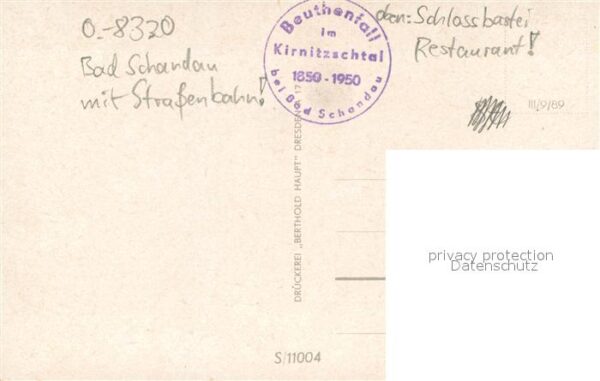 O.-8320
Bad Schandau
mit Straßenbahn!
Beuthenfall
im
Kirnitzschtal
1850-1950
bei Bad Schandau
oben: Schlossbastei
Restaurant!
III/9/89
DRUCKEREI „BERTHOLD HAUPT" DRESDEN 17
privacy protection
Datenschutz
S/11004